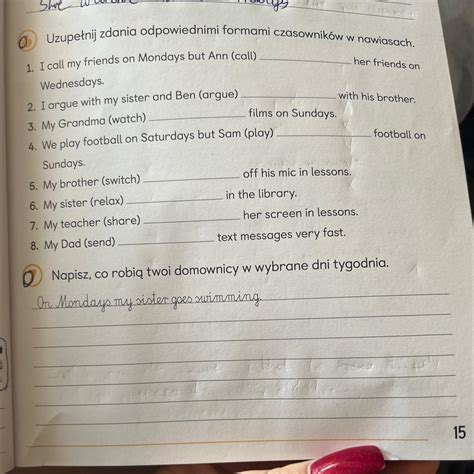 Uzupełnij zdania odpowiednimi formami czasowników w nawiasach.
1. I call my friends on Mondays but Ann (call) ____________ her friends on
Wednesdays.
2. I argue with my sister and Ben (argue) ____________ with his brother.
3. My Grandma (watch) ____________ films on Sundays.
4. We play football on Saturdays but Sam (play) ____________ football on
Sundays.
5. My brother (switch) ____________ off his mic in lessons.
6. My sister (relax) ____________ in the library.
7. My teacher (share) ____________ her screen in lessons.
8. My Dad (send) ____________ text messages very fast.
Napisz, co robią twoi domownicy w wybrane dni tygodnia.
On Mondays my sister goes swimming.
15